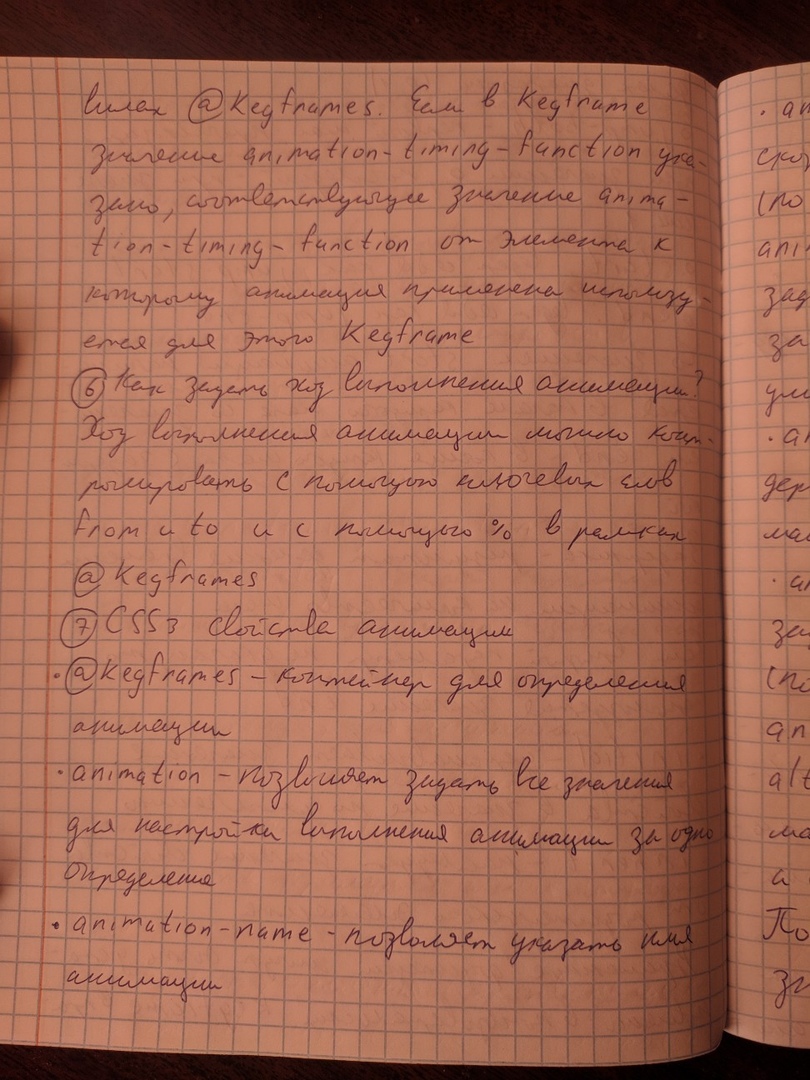 вилах @Keyframes. Если в Keyframe
значение animation-timing-function ука-
зано, соответствующее значение anima-
tion-timing-function от элемента к
которому анимация применена использу-
ется для этого Keyframe
6 Как задать ход выполнения анимации?
Ход выполнения анимации можно конт-
ролировать с помощью ключевых слов
from и to и с помощью % в рамках
@Keyframes
7 CSS3 свойства анимации
· @Keyframes - контейнер для определения
анимации
· animation - позволяет задать все значения
для настройки выполнения анимации за одно
определение
· animation-name - позволяет указать имя
анимации
· an
ско
(по
ani
зад
за
ум
· an
дер
ма
· an
за
(по
an
alt
ма
а
По
зн